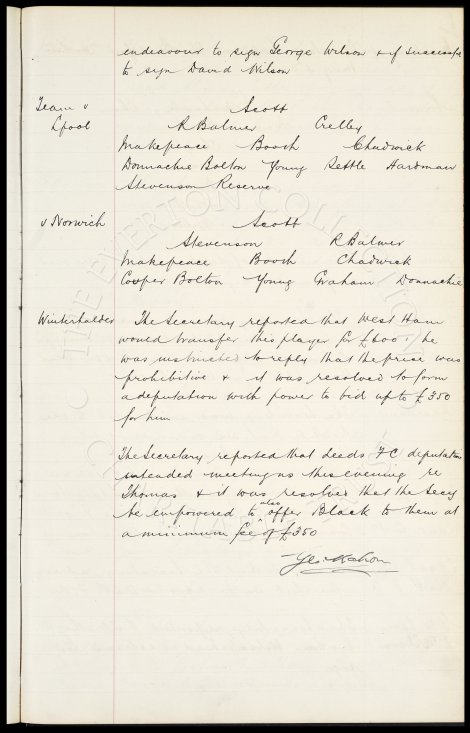 endeavour to sign George Wilson & if successful
to sign David Wilson
Team v
Lpool
Scott
R Balmer Crelley
Makepeace Booth Chadwick
Donnachie Bolton Young Settle Hardman
Stevenson Reserve
v Norwich
Scott
Stevenson R Balmer
Makepeace Booth Chadwick
Cooper Bolton Young Graham Donnachie
Winterhalder
The Secretary reported that West Ham
would transfer this player for £600 he
was instructed to reply that the price was
prohibitive & it was resolved to form
a deputation with power to bid up to £350
for him
The Secretary reported that Leeds F C deputation
intended meeting us this evening re
Thomas & it was resolved that the Secy
be empowered to also offer Black to them at
a minimum fee of £350
THE EVERTON COLLECTION